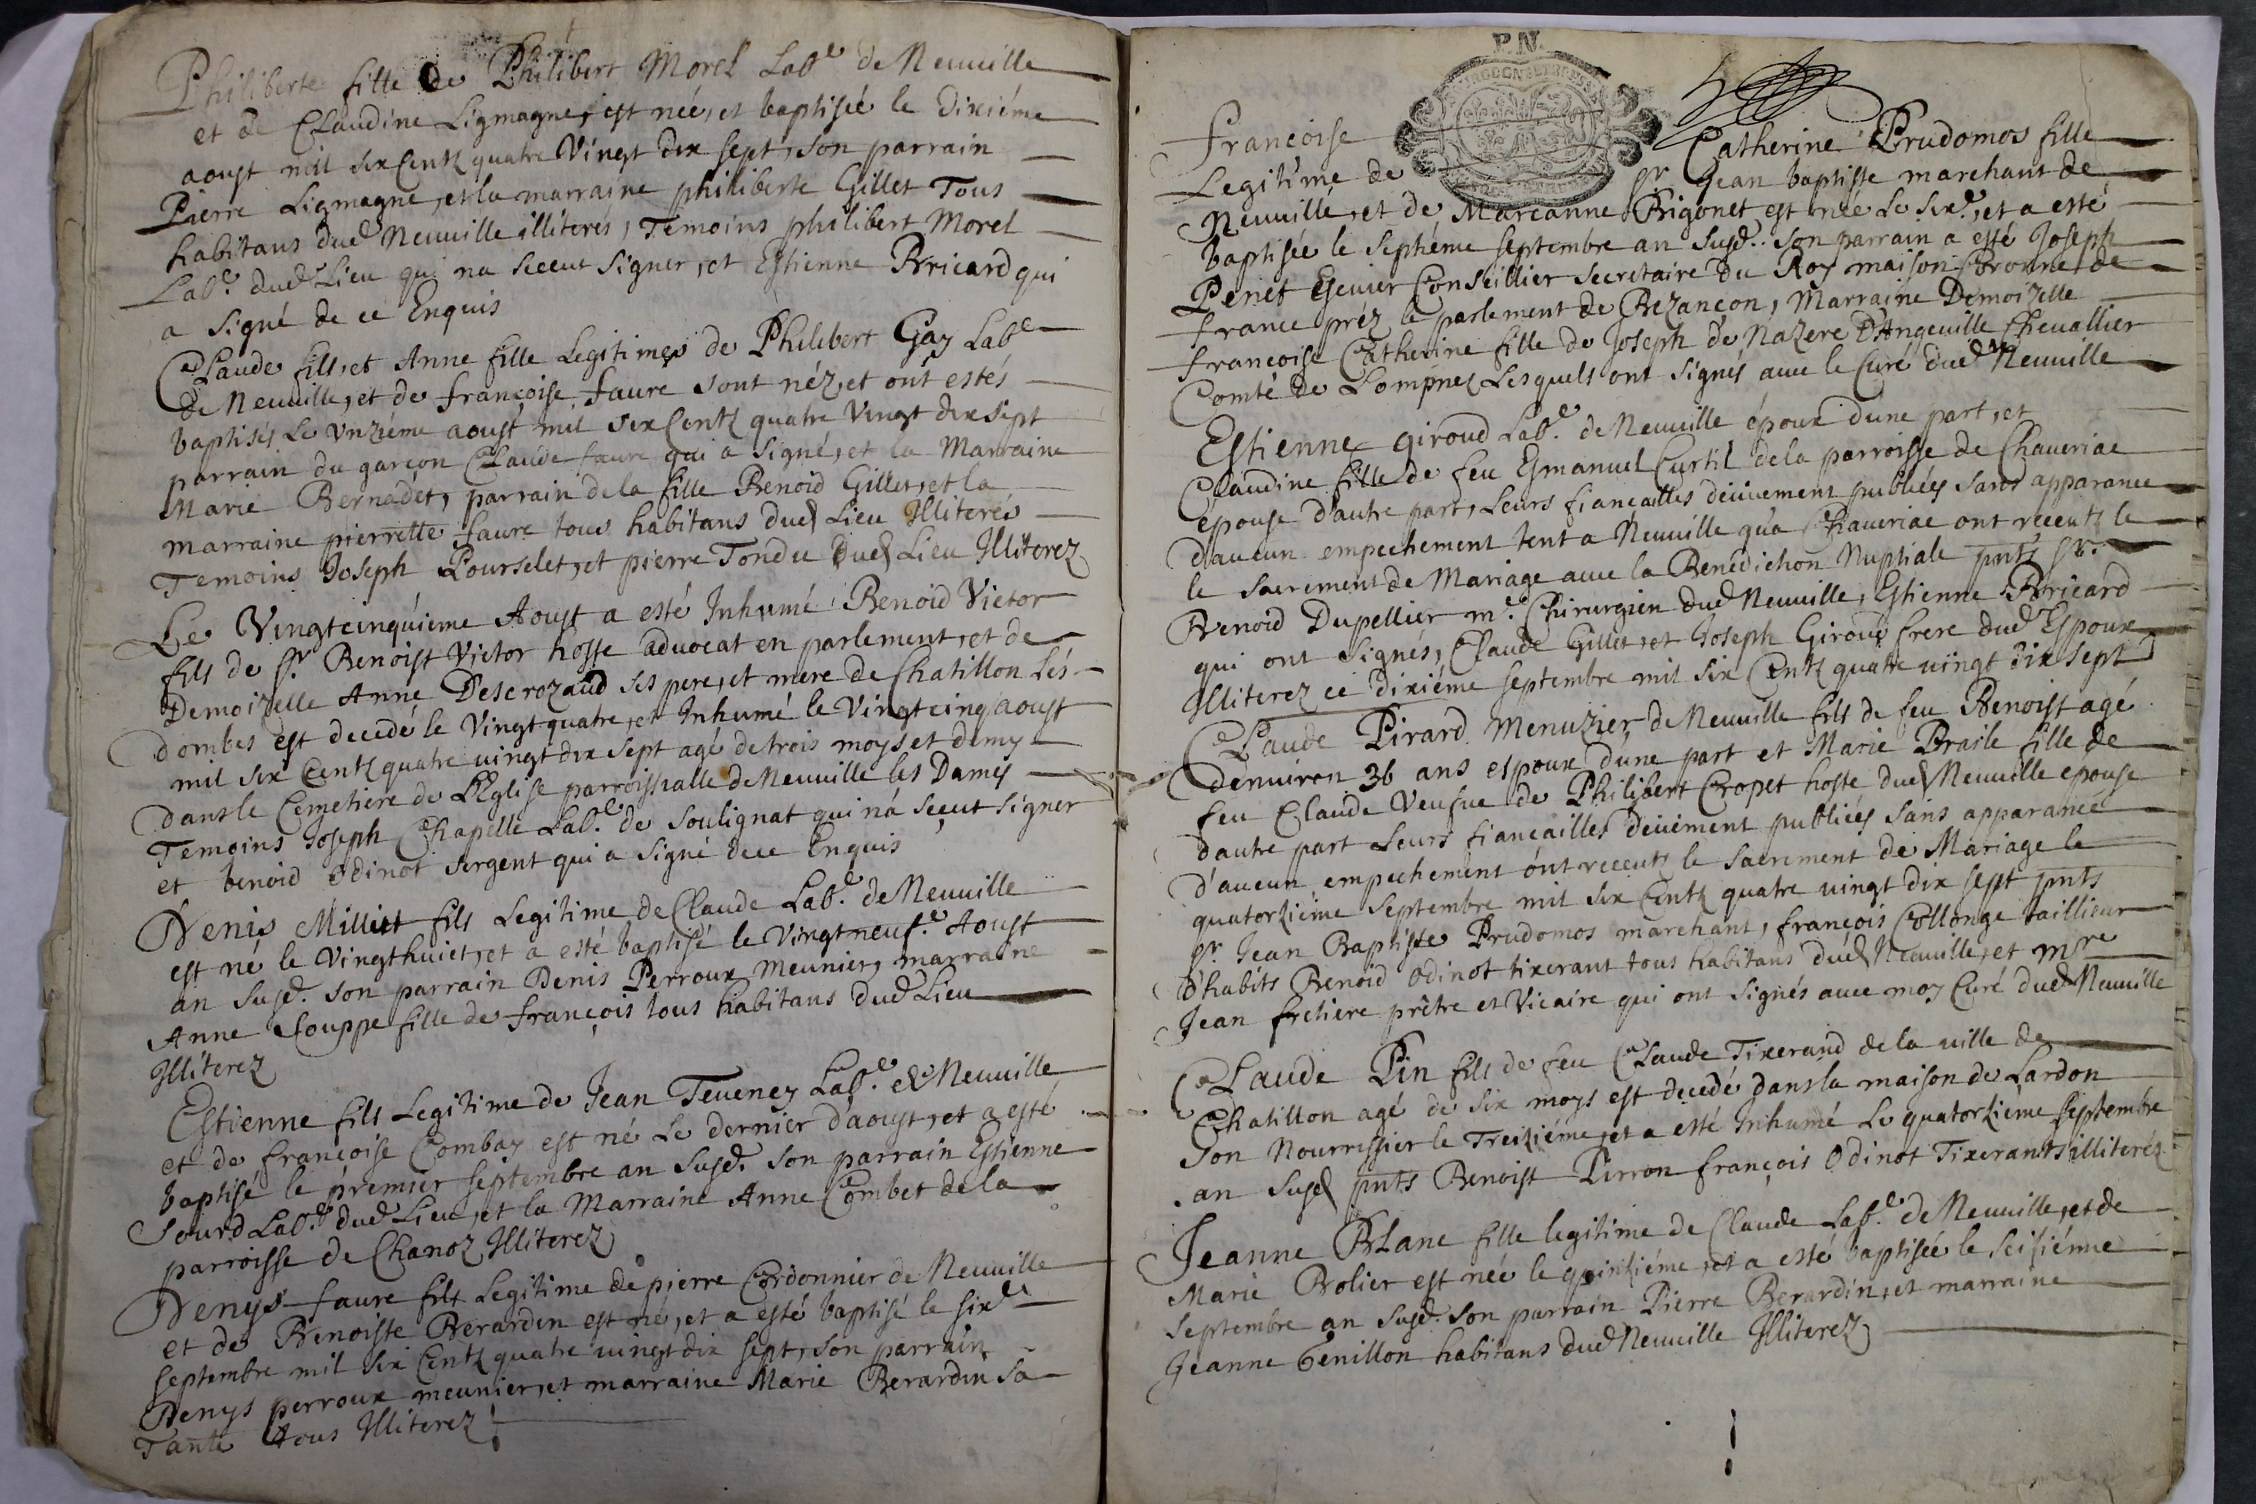 Philiberte fille de Philibert Morel Lab.e de Neuuille
et de Claudine Ligmagne, est née, et baptisée le dixiéme
aoust mil six Centz quatre Vingt dix sept, son parrain
Pierre Ligmagne, et la marraine philiberte Gillet Tous
habitans dud Neuuille illiterés, Temoins philibert Morel
Lab.e dud Lieu qui na sceut signer, et Estienne Bricard qui
a signé de ce Enquis
Claude fils, et Anne fille Legitimes de Philibert Gay Lab.e
de Neuuille, et de françoise faure sont néz, et ont estés
baptisés Le Vnziéme aoust mil six Centz quatre Vingt dix sept
parrain du garçon Claude faure qui a signé, et la Marraine
Marie Bernadet, parrain de la fille Benoid Gillet, et la
marraine pierrette faure tous habitans dud Lieu Illiterés
Temoins Joseph Pourselet, et pierre Tondu dud Lieu Illiterez
Le Vingtcinquiéme Aoust a esté Inhumé Benoid Victor
fils de Sr. Benoist Victor hosse aduocat en parlement, et de
Demoizelle Anne Descrozaud ses pere, et mere de Chatillon Lés
dombes est decedé le Vingt quatre, et Inhumé le Vingt cinq aoust
mil six Centz quatre uingt dix sept agé de trois moys et demy
dans le Cemetiere de L'Eglise parroissialle de Neuuille les Dames
Temoins Joseph Chapelle Lab.e de Soulignat qui na sceut signer
et benoid Odinot sergent qui a signé de ce Enquis
Denis Milliet fils Legitime de Claude Lab.e de Neuuille
est né le Vingthuict, et a esté baptisé le Vingtneuf.e Aoust
an susd. son parrain Denis Perroux Meunier, marraine
Anne Souppe fille de françois tous habitans dud Lieu
Illiterez
Estienne fils Legitime de Jean Teueney Lab.e de Neuuille
et de françoise Combay est né Le dernier d'aoust, et a esté
baptisé le premier septembre an susd. son parrain Estienne
Sourd Lab.e dud Lieu, et la Marraine Anne Combet de la
parroisse de Chanoz Illiterez
Denys faure fils Legitime de pierre Cordonnier de Neuuille
et de Benoiste Berardin est né, et a esté baptisé le sixe
septembre mil six Centz quatre uingt dix sept, son parrain
Denys perroux meunier, et marraine Marie Berardin sa
Tante Tous Illiterez
P.N.
françoise Catherine Prudomos fille
Legitime de Sr Jean baptiste marchant de
Neuuille, et de Marianne Brigonet est née Le six.e, et a esté
baptisée le septiéme septembre an susd. son parrain a esté Joseph
Penet Escuier Conseillier secretaire du Roy maison Coronne de
france préz le parlement de Bezancon, Marraine Demoizelle
françoise Catherine fille de Joseph de Nazere D'Angeuille Cheuallier
Comté de Lompnez Lesquels ont signés auec le Curé dud Neuuille
Estienne giroud Lab.e de Neuuille époux d'une part, et
Claudine fille de feu Esmanuel Curtil de la parroisse de Chaueriac
épouse d'autre part, Leurs fiancailles deüement publiées sans apparance
d'aucun empechement tent a Neuuille qu'a Chaueriac ont receutz le
le sacrement de Mariage auec la Benediction Nuptiale pnts Sr.
Benoid Dupellier m.e Chirurgien dud Neuuille, Estienne Bricard
qui ont signés, Claude Gillet, et Joseph Giroud frere dud Espoux
Illiterez ce dixiéme septembre mil six Centz quatre uingt dix sept
Claude Pirard Menuzier de Neuuille fils de feu Benoist agé
denuiron 36 ans espoux d'une part et Marie Braile fille de
feu Claude Veufue de Philibert Cropet hoste dud Neuuille epouse
dautre part Leurs fiancailles deüement publiées sans apparance
d'aucun empechement ont receutz le sacrement de Mariage le
quatorziéme septembre mil six Centz quatre uingt dix sept pnts
Sr. Jean Baptiste Prudomos marchant, françois Collonge tailleur
d'habits Benoid Odinot tixerant tous habitans dud Neuuille, et mre
Jean fretiere prêtre et Vicaire qui ont signés auec moy Curé dud Neuuille
Claude Pin fils de feu Claude Tixerand de la uille de
Chatillon agé de six moys est decedé dans la maison de Lardon
son Nourrissier le Treiziéme, et a esté Inhumé Le quatorziéme septembre
an susd pnts Benoist Perron françois Odinot Tixerants illiteréz
Jeanne Blanc fille legitime de Claude Lab.e de Neuuille, et de
Marie Brolier est née le quinziéme, et a esté baptisée le seiziéme
septembre an susd. son parrain Pierre Berardin, et marraine
Jeanne Genillon habitans dud Neuuille Illiterez